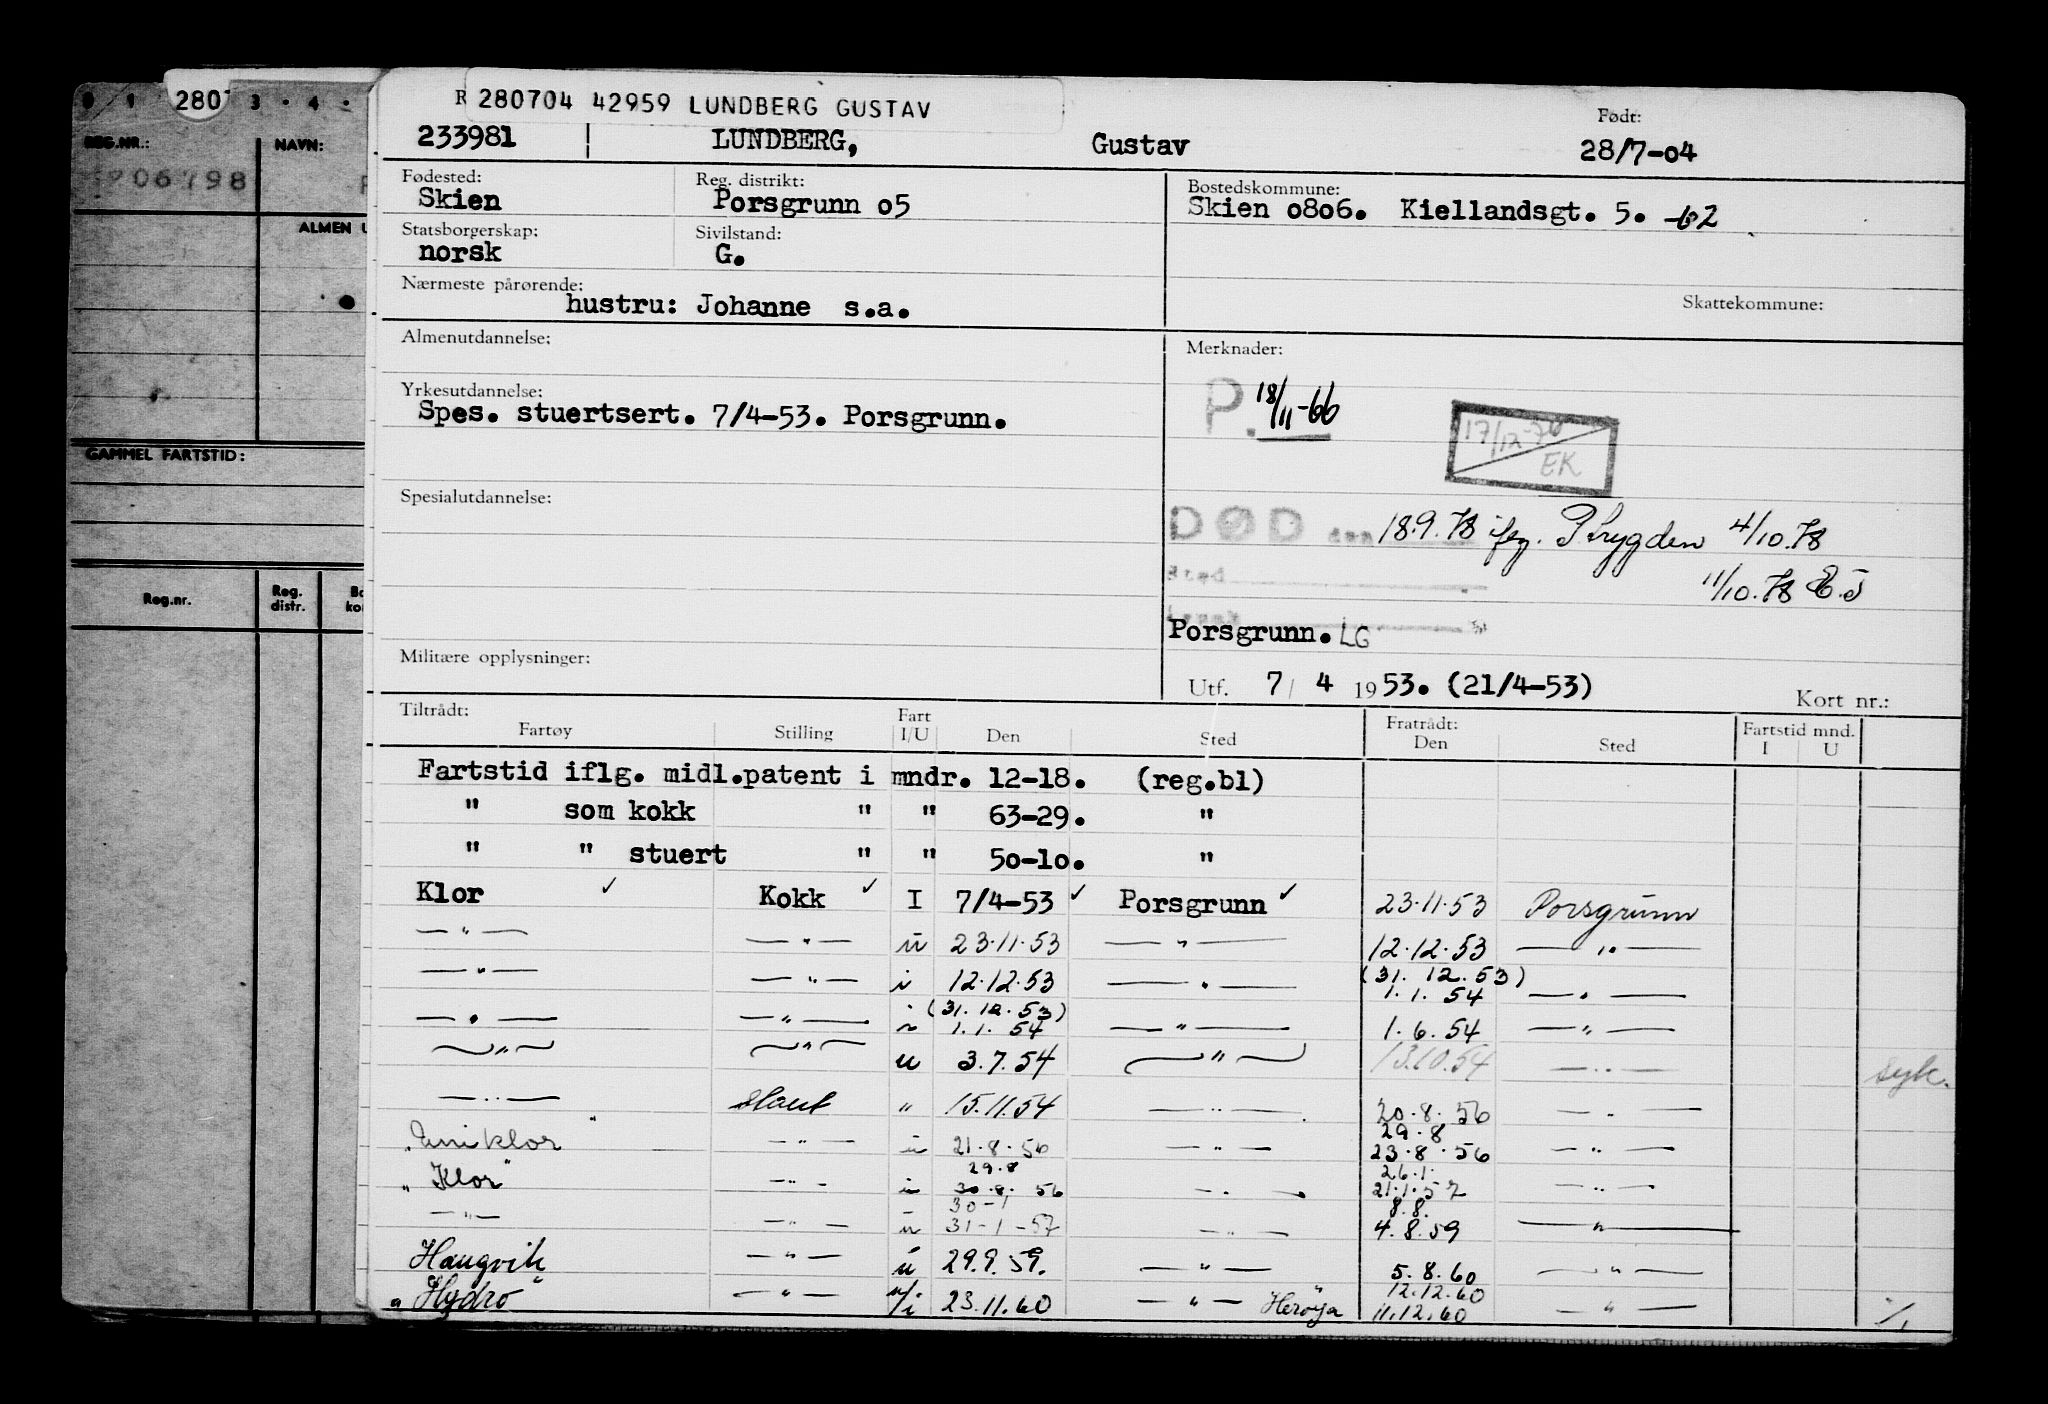 280704 42959 LUNDBERG GUSTAV
233981 LUNDBERG, Gustav
Født:
28/7-04
Fødested:
Skien
Reg. distrikt:
Porsgrunn 05
Bostedskommune:
Skien 0806. Kiellandsgt. 5. -62
Statsborgerskap:
norsk
Sivilstand:
G.
Nærmeste pårørende:
hustru: Johanne s.a.
Skattekommune:
Almenutdannelse:
Merknader:
P. 18/11-66
Yrkesutdannelse:
Spes. stuertsert. 7/4-53. Porsgrunn.
17/12-70
EK
Spesialutdannelse:
DØD den 18.9.78 ifg. P trygden 4/10.78
Sted
11/10.78
Porsgrunn. LG
Militære opplysninger:
Utf. 7/ 4 1953. (21/4-53)
Kort nr.:
Tiltrådt:
Fartøy Stilling Fart I/U Den Sted Fratrådt: Den Sted Fartstid mnd. I U
Fartstid iflg. midl.patent i mndr. 12-18. (reg.bl)
" som kokk " " 63-29. "
" " stuert " " 50-10. "
Klor ✓ Kokk ✓ I 7/4-53 ✓ Porsgrunn ✓ 23.11.53 Porsgrunn
— " — — " — u 23.11.53 — " — 12.12.53 — " —
— " — — " — i 12.12.53 — " — (31.12.53) 1.1.54 — " —
— " — — " — (31.12.53) 1.1.54 — " — 1.6.54 — " —
— " — — " — u 3.7.54 — " — 13.10.54 — " — syk.
— " — " 15.11.54 — " — 20.8.56 — " —
29.8
"Uniklor" — " — u 21.8.56 — " — 23.8.56 — " —
29.8 26.1
"Klor" — " — 30.8.56 — " — 21.1.57 — " —
30-1 8.8.
— " — — " — u 31-1-57 — " — 4.8.59 — " —
Haugvik — " — u 29.9.59. — " — 5.8.60 — " —
12.12.60
"Hydro" — " — u/i 23.11.60 — " — Herøya 11.12.60 — " —
280 3 . 4 .
REG.NR.: NAVN:
206798
ALMEN U
GAMMEL FARTSTID:
Reg.nr. Reg. distr. Bo kor